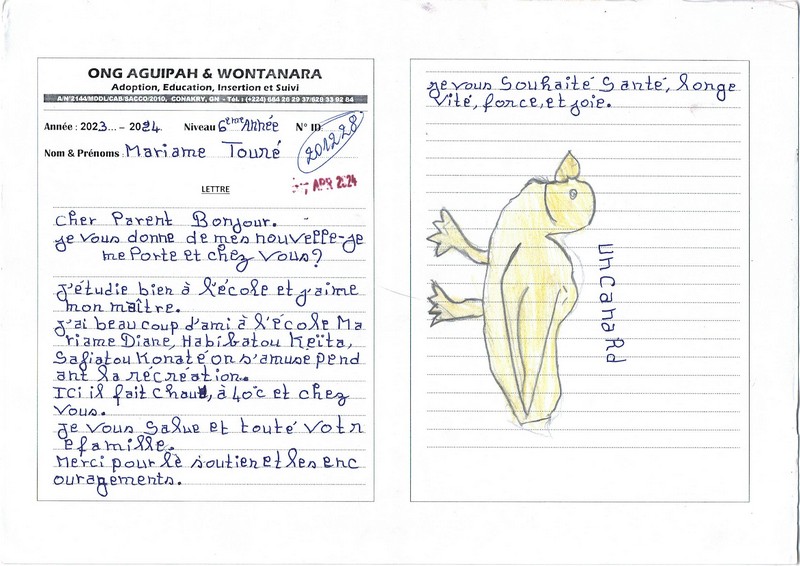 ONG AGUIPAH & WONTANARA
Adoption, Education, Insertion et Suivi
A/N°2144/MDDL/CAB/SACCO/2010, CONAKRY, GN - Tél : (+224) 664 28 29 37/628 33 92 84
Année : 2023... - 2024 Niveau 6ème Année N° ID
201228
Nom & Prénoms : Mariame Touré
APR 2024
LETTRE
Cher Parent Bonjour.
je vous donne de mes nouvelle-je
me Porte et chez Vous?
J'étudie bien à l'école et j'aime
mon maître.
J'ai beaucoup d'ami à l'école Ma
riame Diane, Habibatou Keïta,
Safiatou Konaté on s'amuse pend
ant la récréation.
Ici il fait chaud, à 40°c et chez
Vous.
Je vous Salue et touté Votr
e famille.
Merci pour le soutien et les enc
ouragements.
je vous Souhaité Santé, longe
Vité, force, et joie.
un canard